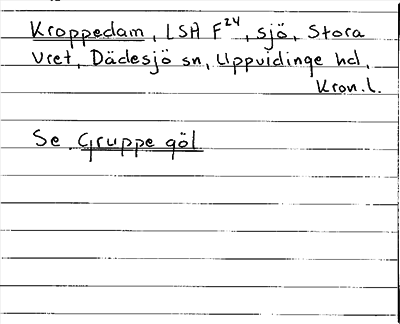 Kroppedam, LSA F24, sjö, Stora
Vret, Dädesjö sn, Uppvidinge hd,
Kron. l.
Se Gruppe göl